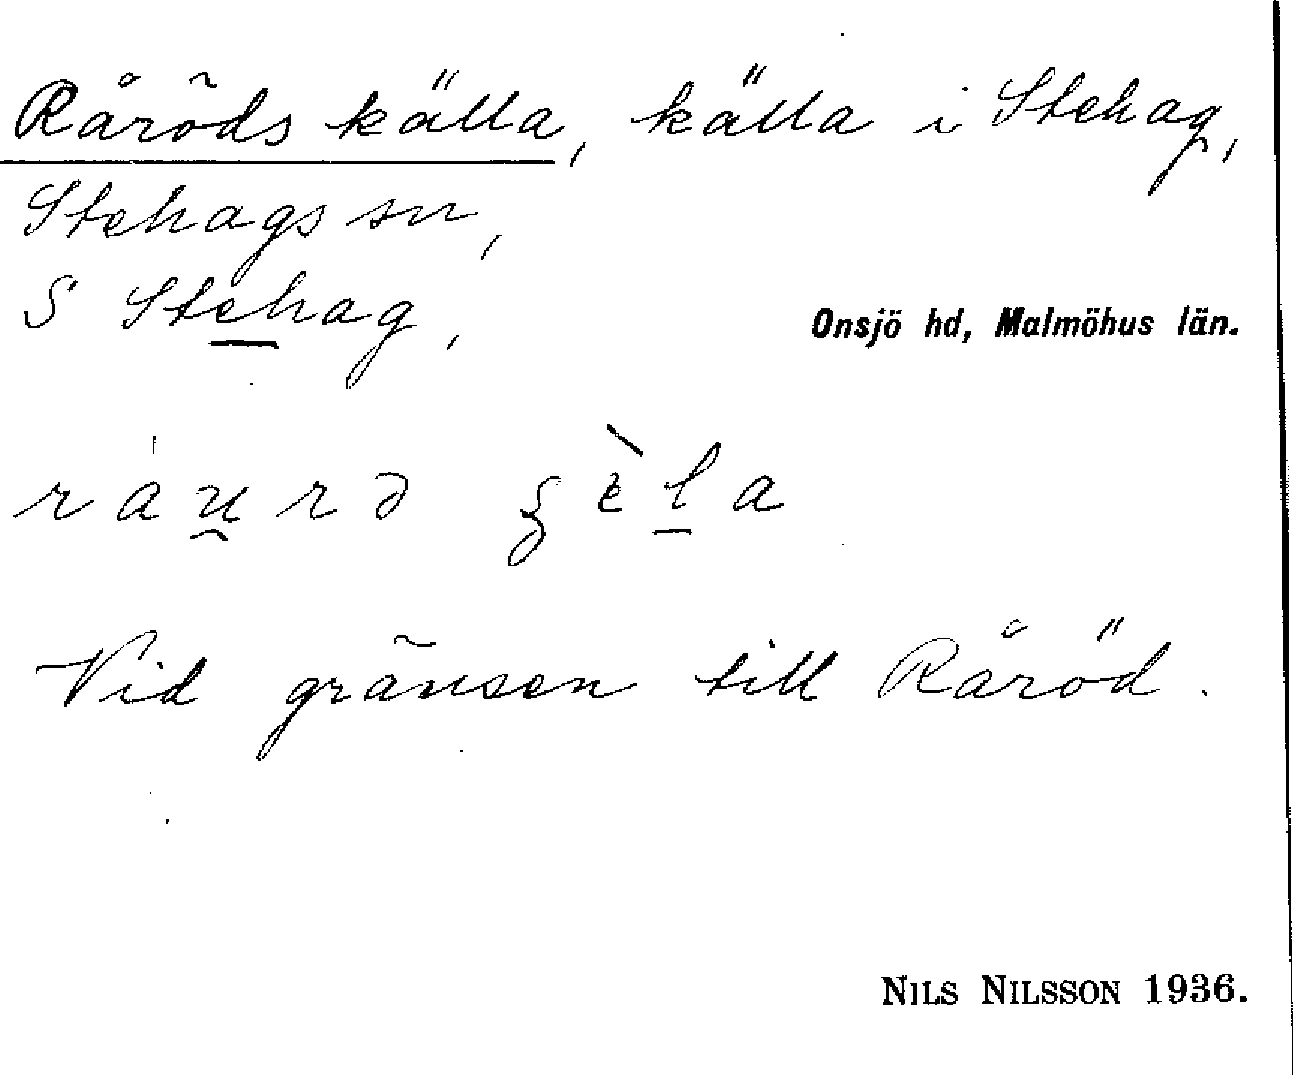 Råröds källa, källa i Stehag,
Stehags sn,
S Stehag,
Onsjö hd, Malmöhus län.
ráu̯rə ʂὲl̠a
Vid gränsen till Råröd.
NILS NILSSON 1936.